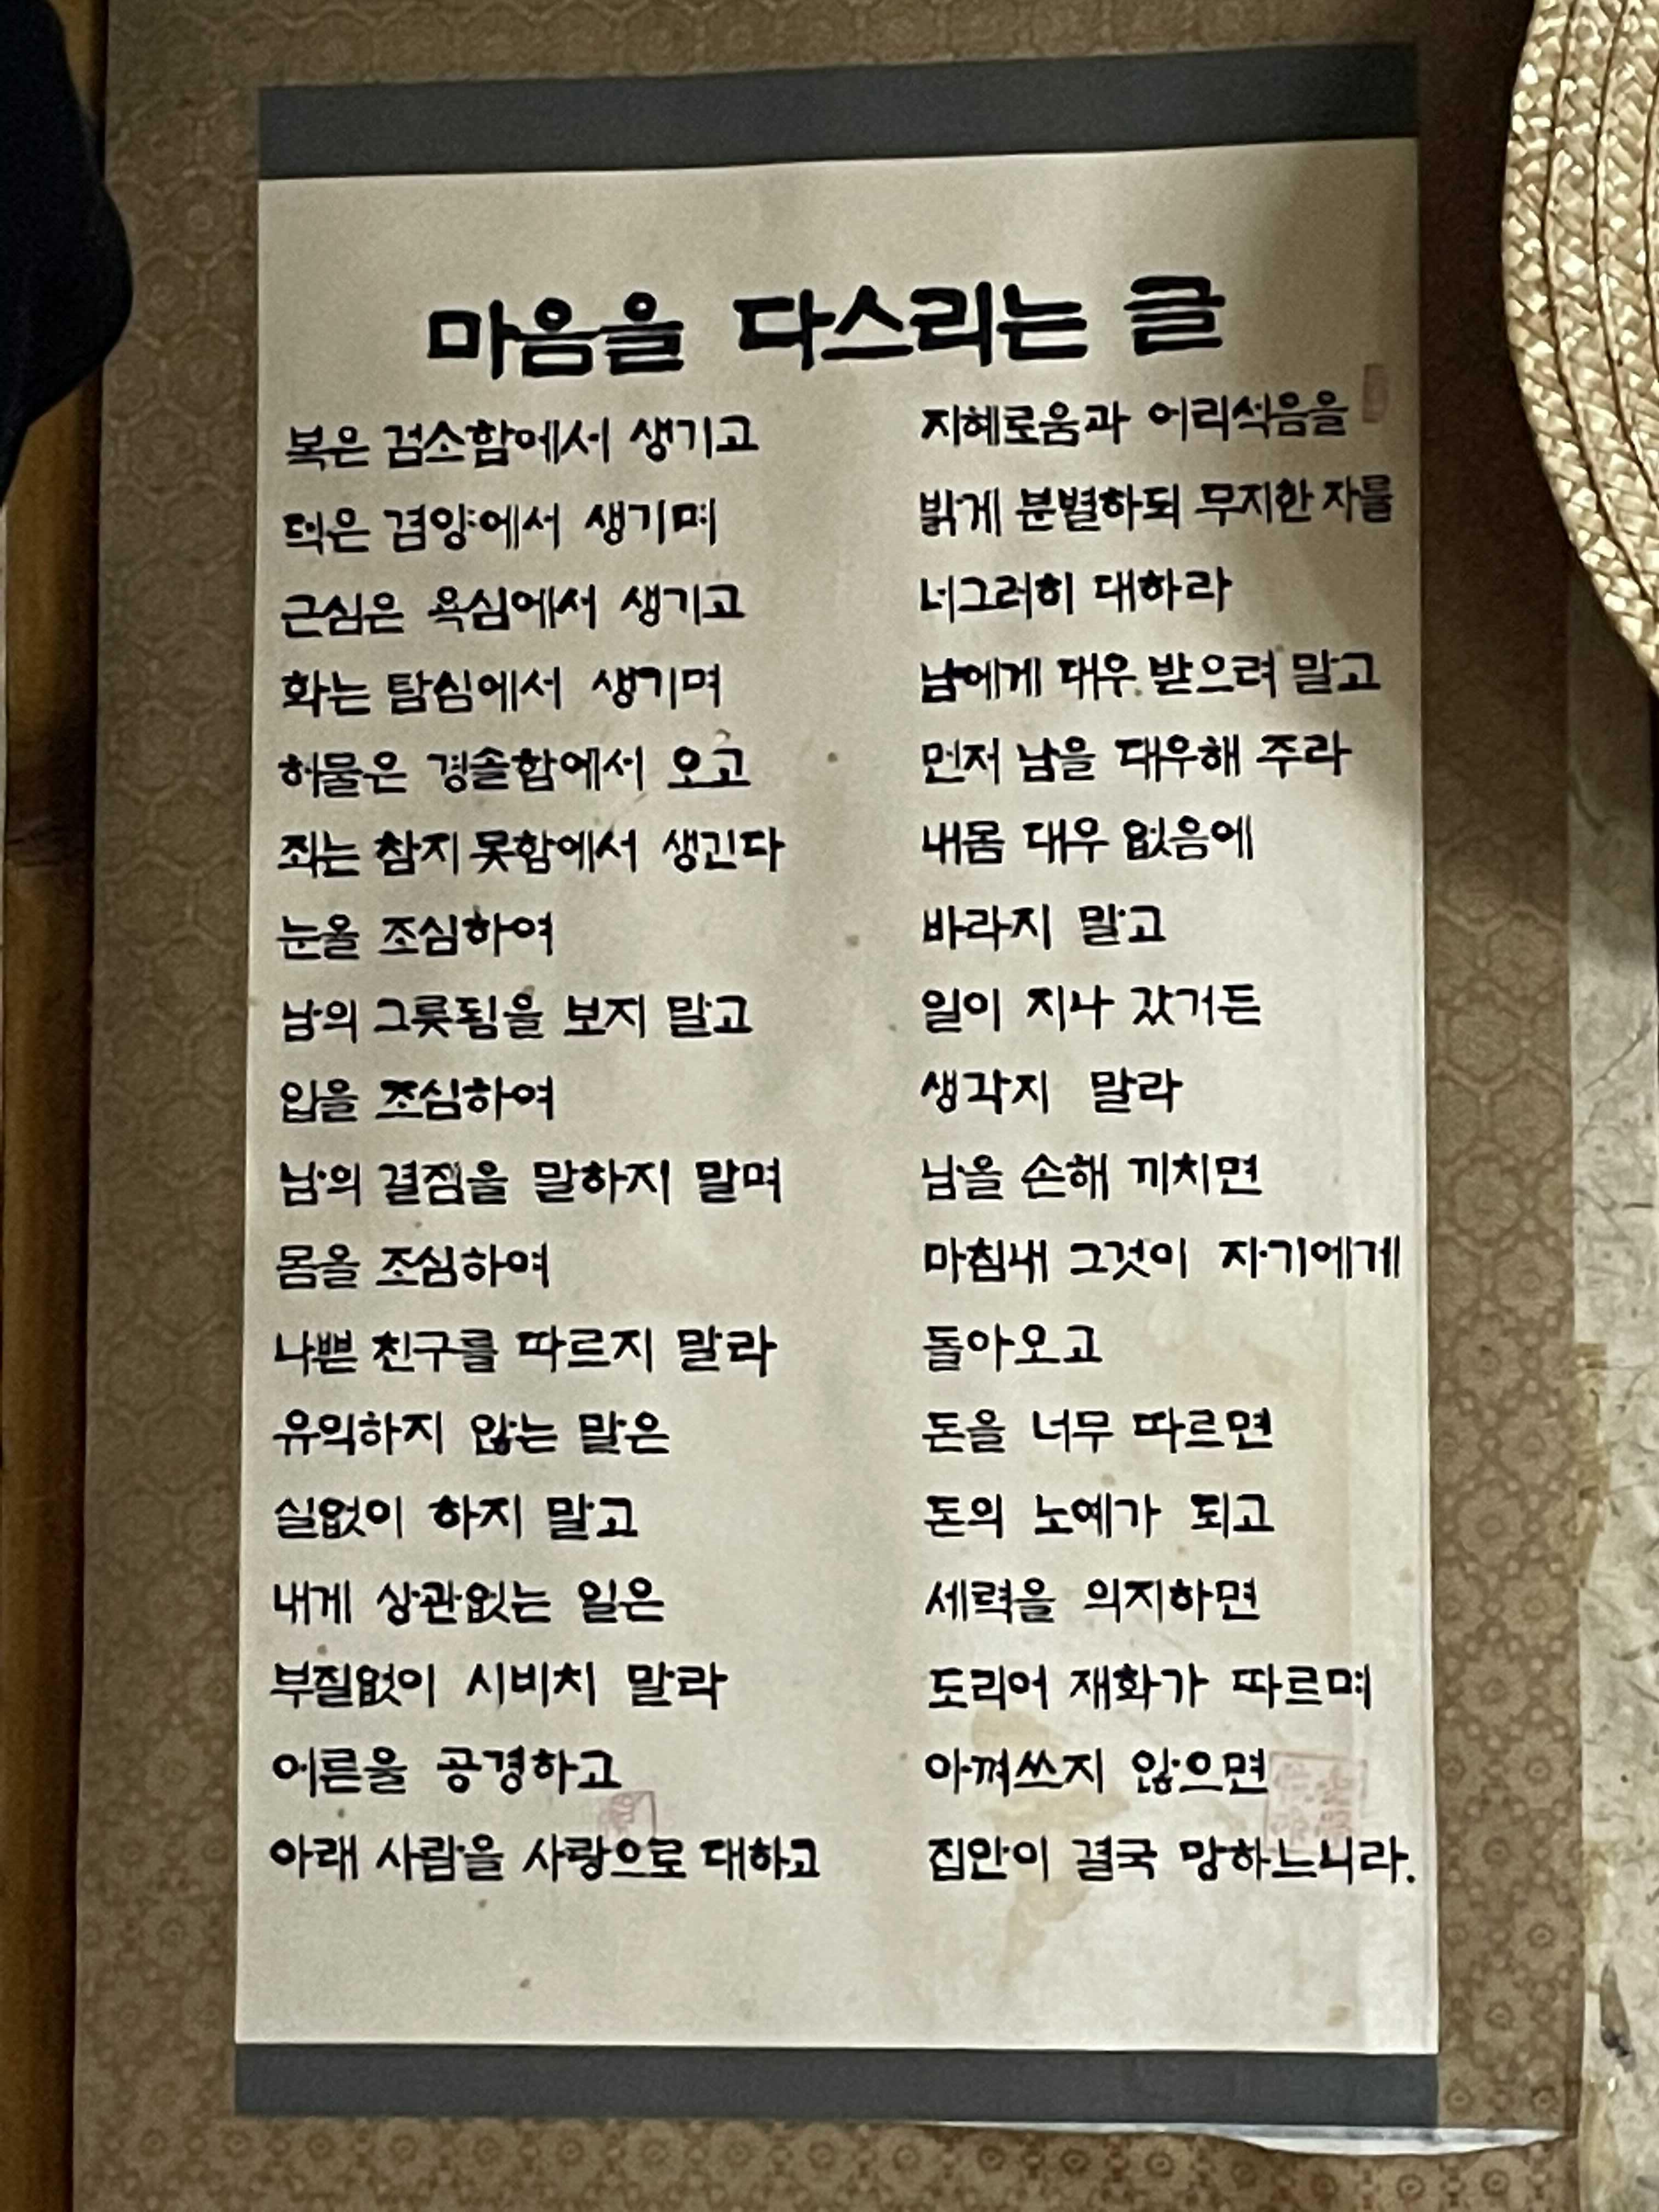 마음을 다스리는 글
복은 검소함에서 생기고
덕은 겸양에서 생기며
근심은 욕심에서 생기고
화는 탐심에서 생기며
허물은 경솔함에서 오고
죄는 참지 못함에서 생긴다
눈을 조심하여
남의 그릇됨을 보지 말고
입을 조심하여
남의 결점을 말하지 말며
몸을 조심하여
나쁜 친구를 따르지 말라
유익하지 않는 말은
실없이 하지 말고
내게 상관없는 일은
부질없이 시비치 말라
어른을 공경하고
아래 사람을 사랑으로 대하고
지혜로움과 어리석음을
밝게 분별하되 무지한 자를
너그러히 대하라
남에게 대우 받으려 말고
먼저 남을 대우해 주라
내몸 대우 없음에
바라지 말고
일이 지나 갔거든
생각지 말라
남을 손해 끼치면
마침내 그것이 자기에게
돌아오고
돈을 너무 따르면
돈의 노예가 되고
세력을 의지하면
도리어 재화가 따르며
아껴쓰지 않으면
집안이 결국 망하느니라.